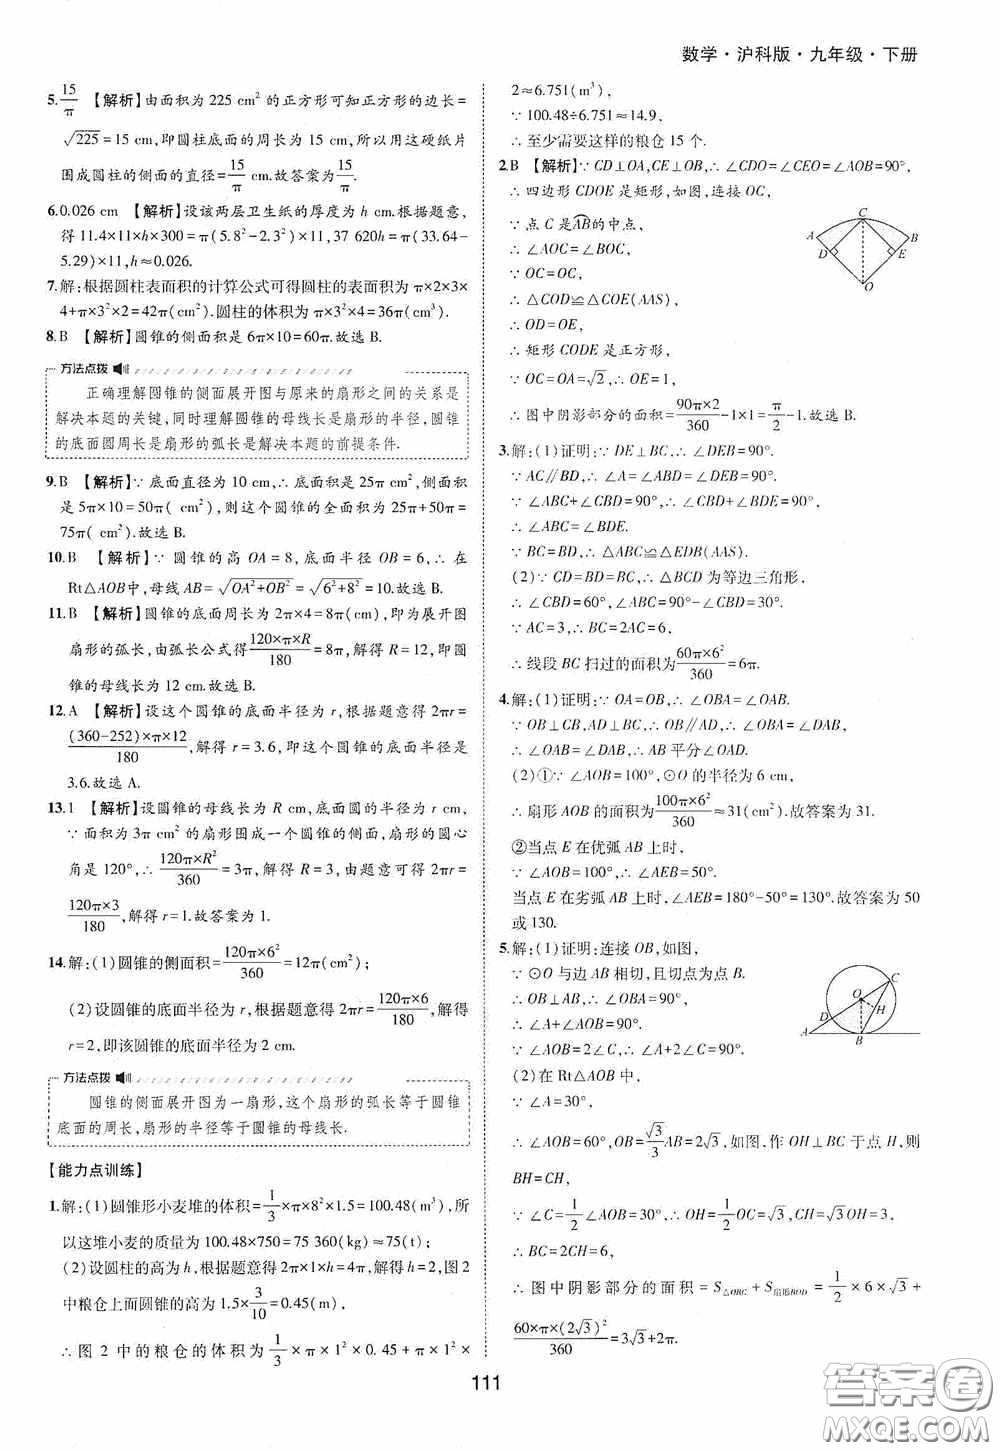 数学·沪科版·九年级·下册
5.15/π 【解析】由面积为 225 cm²的正方形可知正方形的边长=
√225=15 cm,即圆柱底面的周长为 15 cm,所以用这硬纸片
围成圆柱的侧面的直径=15/π cm.故答案为15/π.
6.0.026 cm 【解析】设该两层卫生纸的厚度为 h cm.根据题意,
得 11.4×11×h×300=π(5.8²-2.3²)×11,37 620h=π(33.64-
5.29)×11,h≈0.026.
7.解:根据圆柱表面积的计算公式可得圆柱的表面积为 π×2×3×
4+π×3²×2=42π(cm²).圆柱的体积为 π×3²×4=36π(cm³).
8.B 【解析】圆锥的侧面积是 6π×10=60π.故选 B.
方法点拨
正确理解圆锥的侧面展开图与原来的扇形之间的关系是
解决本题的关键,同时理解圆锥的母线长是扇形的半径,圆锥
的底面圆周长是扇形的弧长是解决本题的前提条件.
9.B 【解析】∵底面直径为 10 cm,∴底面积为 25π cm²,侧面积
5π×10=50π( cm²),则这个圆锥的全面积为 25π+50π=
75π( cm²).故选 B.
10.B 【解析】∵圆锥的高 OA=8,底面半径 OB=6,∴在
Rt△AOB中,母线 AB=√OA²+OB²=√6²+8²=10.故选 B.
11.B 【解析】圆锥的底面周长为 2π×4=8π(cm),即为展开图
扇形的弧长,由弧长公式得120×π×R/180=8π,解得 R=12,即圆
锥的母线长为 12 cm.故选 B.
12.A 【解析】设这个圆锥的底面半径为 r,根据题意得 2πr=
(360-252)×π×12/180,解得 r=3.6,即这个圆锥的底面半径是
3.6.故选 A.
13.1 【解析】设圆锥的母线长为 R cm,底面的半径为 r cm,
∵面积为 3π cm²的扇形围成一个圆锥的侧面,扇形的圆心
角是 120°,∴120π×R²/360=3π,解得 R=3,由题意可得 2πr=
120π×3/180,解得 r=1.故答案为 1.
14.解:(1)圆锥的侧面积=120π×6²/360=12π(cm²);
(2)设圆锥的底面半径为 r,根据题意得 2πr=120π×6/180,解得
r=2,即该圆锥的底面半径为 2 cm.
方法点拨
圆锥的侧面展开图为一扇形,这个扇形的弧长等于圆锥
底面的周长,扇形的半径等于圆锥的母线长.
【能力点训练】
1.解:(1)圆锥形小麦堆的体积=1/3×π×8²×1.5=100.48(m³),所
以这堆小麦的质量为 100.48×750=75 360(kg)≈75(t);
(2)设圆柱的高为 h,根据题意得 2π×1×h=4π,解得 h=2,图 2
中粮仓上面圆锥的高为 1.5×3/10=0.45(m),
∴图 2 中的粮仓的体积为 1/3×π×1²×0.45+π×1²×
2≈6.751(m³),
∵100.48÷6.751≈14.9,
∴至少需要这样的粮仓 15 个.
2.B 【解析】∵CD⊥OA,CE⊥OB,∴∠CDO=∠CEO=∠AOB=90°,
∴四边形 CDOE 是矩形,如图,连接 OC,
∵点 C 是AB的中点,
∴∠AOC=∠BOC,
∵OC=OC,
∴△COD≌△COE(AAS),
∴OD=OE,
∴矩形 CODE 是正方形,
∵OC=OA=√2,∴OE=1,
∴图中阴影部分的面积=90π×2/360-1×1=π/2-1.故选 B.
C
A
B
D
E
O
3.解:(1)证明:∵DE⊥BC,∴∠DEB=90°.
∵AC∥BD,∴∠A=∠ABD=∠DEB=90°.
∵∠ABC+∠CBD=90°,∴∠CBD+∠BDE=90°,
∴∠ABC=∠BDE.
∵BC=BD,∴△ABC≌△EDB(AAS).
(2)∵CD=BD=BC,∴△BCD 为等边三角形,
∴∠CBD=60°,∠ABC=90°-∠CBD=30°.
∵AC=3,∴BC=2AC=6,
∴线段 BC 扫过的面积为60π×6²/360=6π.
4.解:(1)证明:∵OA=OB,∴∠OBA=∠OAB.
∵OB⊥CB,AD⊥BC,∴OB∥AD,∴∠OBA=∠DAB,
∴∠OAB=∠DAB,∴AB 平分∠OAD.
(2)①∵∠AOB=100°,⊙O 的半径为 6 cm,
∴扇形 AOB 的面积为100π×6²/360≈31(cm²).故答案为 31.
②当点 E 在优弧 AB 上时,
∵∠AOB=100°,∴∠AEB=50°.
当点 E 在劣弧 AB 上时,∠AEB=180°-50°=130°.故答案为 50
或 130.
5.解:(1)证明:连接 OB,如图,
∵⊙O 与边 AB 相切,且切点为点 B.
∴OB⊥AB,∴∠OBA=90°,
∴∠A+∠AOB=90°.
∵∠AOB=2∠C,∴∠A+2∠C=90°.
(2)在 Rt△AOB 中,
∵∠A=30°,
∴∠AOB=60°,OB=√3/3AB=2√3,如图.作 OH⊥BC 于点 H,则
BH=CH,
∵∠C=1/2∠AOB=30°,∴OH=1/2OC=√3,CH=√3OH=3,
∴BC=2CH=6,
∴图中阴影部分的面积=S△OBC+S扇形BOD=1/2×6×√3+
60×π×(2√3)²/360=3√3+2π.
C
O
H
D
A
B
111
答案卷
MXQE.COM